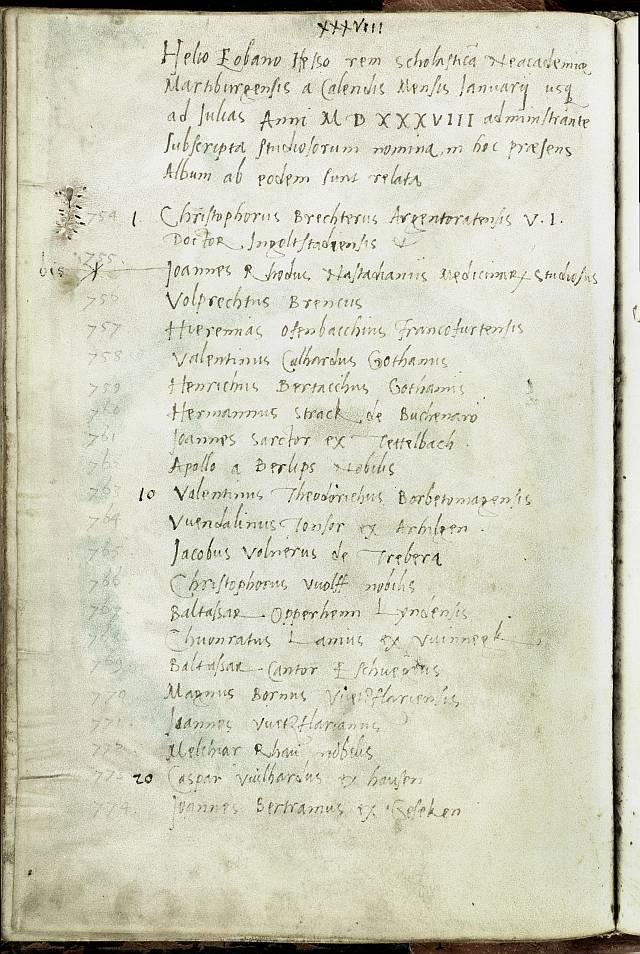 XXXVIII
Helio Eobano Hesso rem scholasticā Neacademiæ
Marthurgensis a Calendis Mensis Januarij usq
ad Julias Anni M D XXXVIII administrante
subscripta studiosorum nomina in hoc præsens
Album ab eodem sunt relata
754 1 Christophorus Brechterus Argentoratensis V. I.
Doctor Ingolstadiensis
bis 755 Joannes Rhodus Nastadianus Medicinæ studiosus
756 Volprechtus Brencus
757 Hieremias Ofenbacchius Francofurtensis
758 Valentinus Calhardus Gothanus
759 Henrichus Bertacchus Gothanus
760 Hermannus Strack de Buchenaro
761 Joannes Sarctor ex Tettelbach
762 Apollo a Berlips Nobilis
763 10 Valentinus Theodorichus Borbetomagensis
764 Vuendalinus Tonsor ex Arhilgen
765 Jacobus Volnerus de Trebera
766 Christophorus Vuolff nobilis
767 Baltassar Opperhenn Lyndensis
768 Chuonratus Lamus ex Vuinneck
769 Baltassar Cantor Eschuegdus
770 Magnus Bornus Vuetzflariensis
771 Joannes Vuetzflarianus
772 Melchiar Rhau nobilis
773 20 Caspar Vuilhardus ex hausen
774 Joannes Bertramus ex Geseken